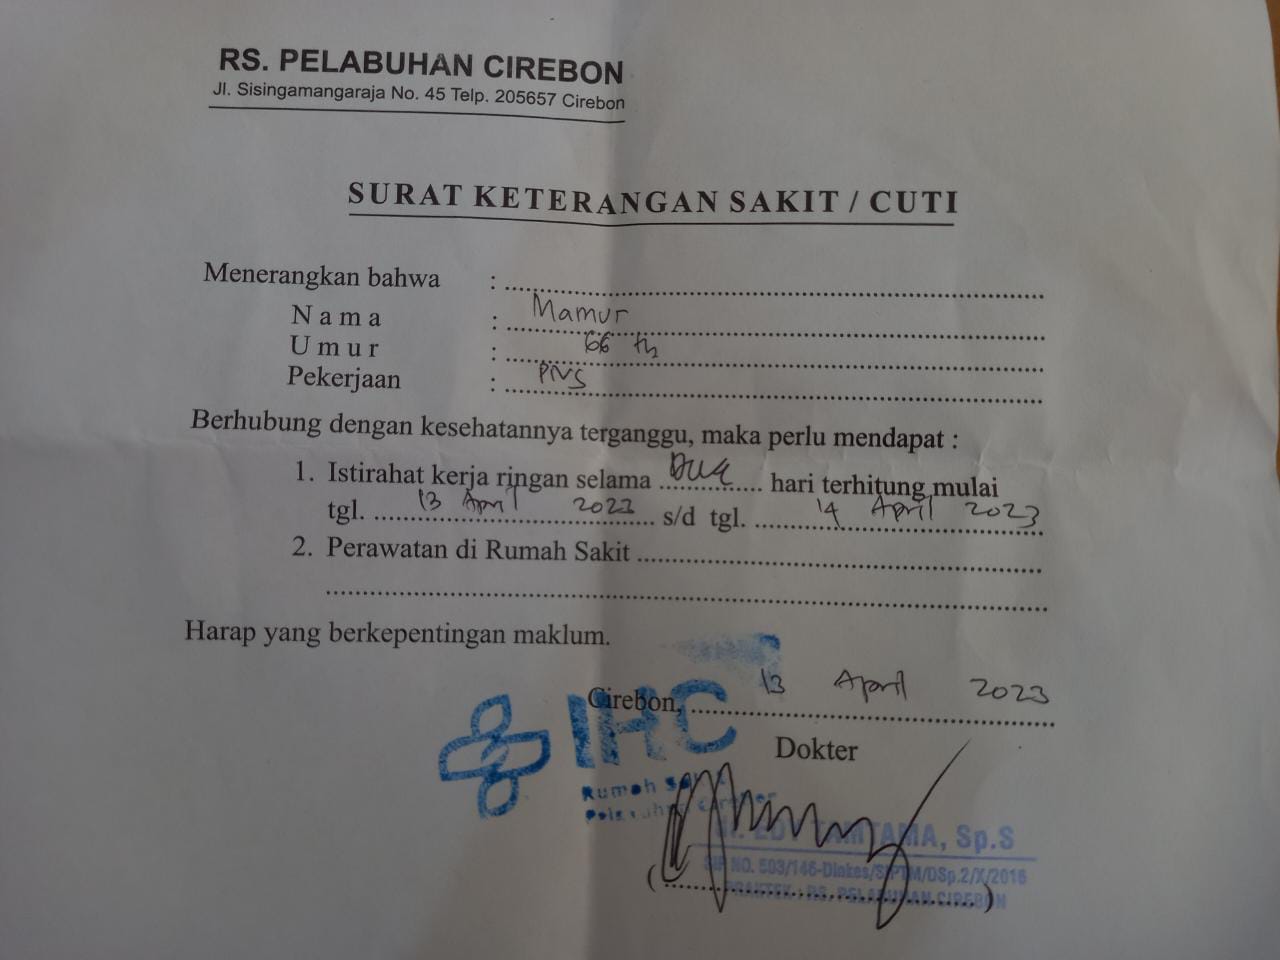 RS. PELABUHAN CIREBON
Jl. Sisingamangaraja No. 45 Telp. 205657 Cirebon
SURAT KETERANGAN SAKIT / CUTI
Menerangkan bahwa : ........................
N a m a : Mamur
U m u r : 66 th
Pekerjaan : PNS
Berhubung dengan kesehatannya terganggu, maka perlu mendapat :
1. Istirahat kerja ringan selama Dua hari terhitung mulai
tgl. 13 April 2023 s/d tgl. 14 April 2023
2. Perawatan di Rumah Sakit ........................
Harap yang berkepentingan maklum.
Cirebon, 13 April 2023
IHC
Rumah Sakit
Pelabuhan Cirebon
Dokter
dr. EDY TAMTAMA, Sp.S
SIP NO. 503/146-Dinkes/SIPTM/DSp.2/X/2016
PRAKTEK : RS. PELABUHAN CIREBON